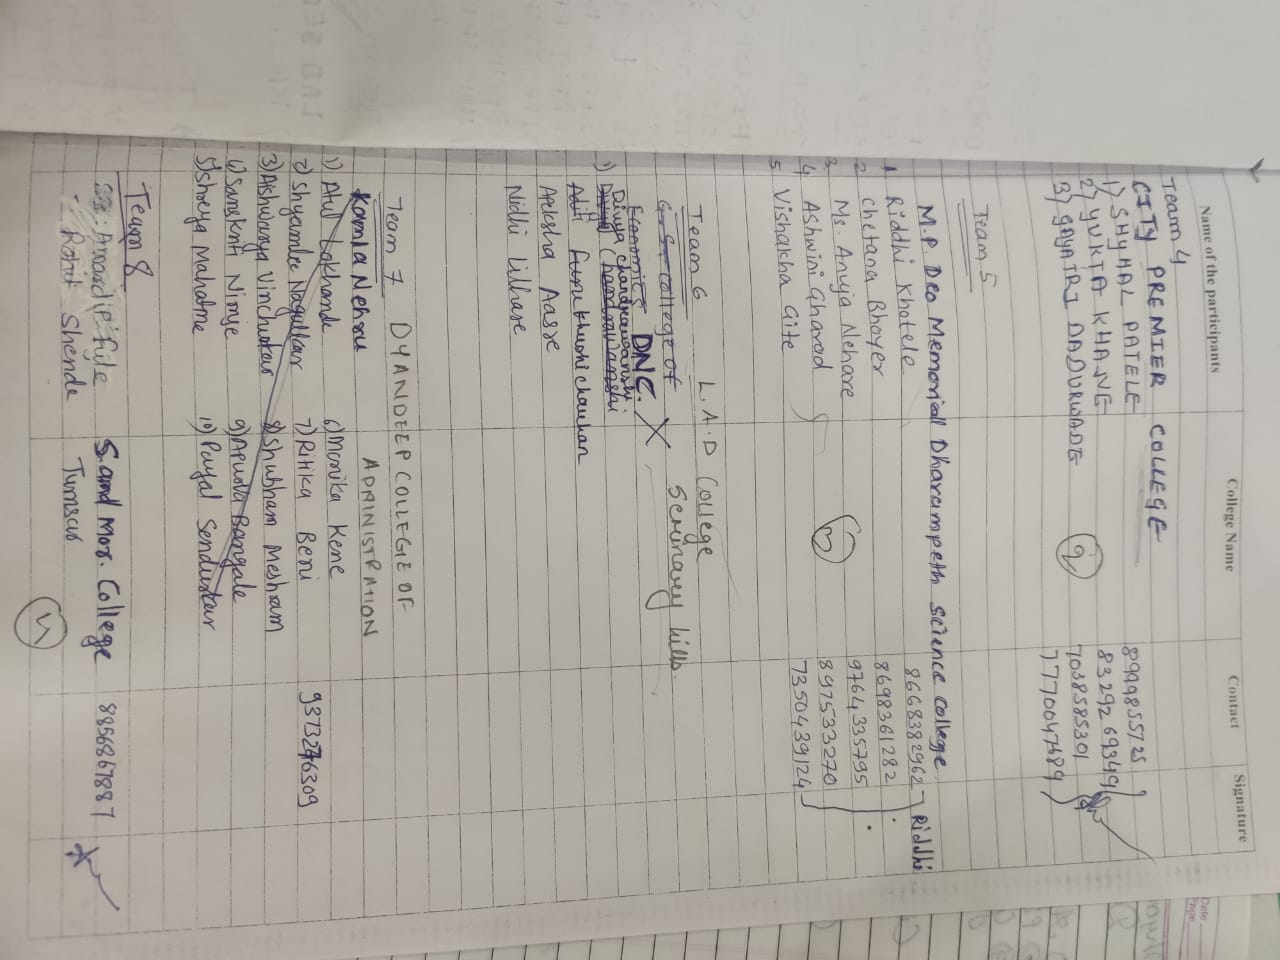 Name of the participants College Name Contact Signature
Team 4
CITY PREMIER COLLEGE
1) SHYMAL PATELE 8999855725
2) YUKTA KHANE 8329269349
3) GAYATRI DADURWADE 2 7038585301
7770047689
Team 5
M.P. Deo Memorial Dharampeth Science College
1 Riddhi Khotele 8668382962 Riddhi
2 Chetana Bhoyer 8698361282
3 Ms. Anuja Nehare 9764335795
4 Ashwini Gharad 3 897533270
5 Vishakha Gite 7350439124
Team 6 L.A.D College
G.S. College of Seminary hills
Economics DNC. X
Divya Chandrawanshi.
1)
Nidhi Lilhare
Team 7 DYANDEEP COLLEGE OF
Kamla Nehru ADMINISTRATION
1) Atul Lokhande 6) Monika Kene
2) Shyamlee Nagullwar 7) Ritika Beni 9373246309
3) Aishwarya Vinchurkar 8) Shubham Meshram
4) Sanskruti Nimje 9) Apurva Bangale
5) Shreya Mahalme 10) Payal Sendurkar
Team 8
S. and Mor. College 8856867887
Rohit Shende Tumsar